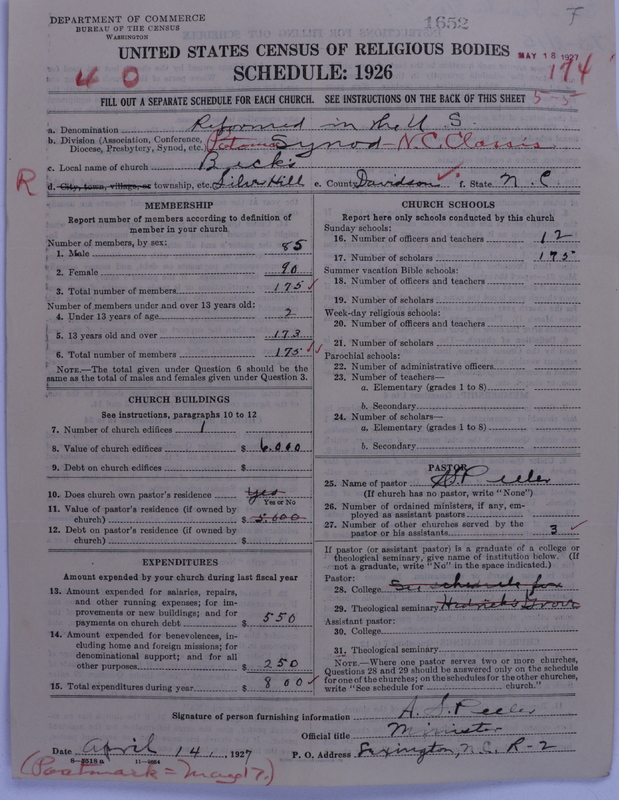 DEPARTMENT OF COMMERCE
BUREAU OF THE CENSUS
WASHINGTON
1652
F
UNITED STATES CENSUS OF RELIGIOUS BODIES
MAY 18 1927
SCHEDULE: 1926
4 0
174
FILL OUT A SEPARATE SCHEDULE FOR EACH CHURCH. SEE INSTRUCTIONS ON THE BACK OF THIS SHEET
5-5
a. Denomination Reformed in the U S
b. Division (Association, Conference, Diocese, Presbytery, Synod, etc.) Potomac Synod - N.C. Classis
c. Local name of church Beck's
R
d. City, town, village, or township, etc. Silver Hill e. County Davidson f. State N. C
MEMBERSHIP
Report number of members according to definition of member in your church
Number of members, by sex:
1. Male 85
2. Female 90
3. Total number of members 175
Number of members under and over 13 years old:
4. Under 13 years of age 2
5. 13 years old and over 173
6. Total number of members 175
NOTE.—The total given under Question 6 should be the same as the total of males and females given under Question 3.
CHURCH BUILDINGS
See instructions, paragraphs 10 to 12
7. Number of church edifices 1
8. Value of church edifices $ 6.000
9. Debt on church edifices $
10. Does church own pastor's residence Yes
Yes or No
11. Value of pastor's residence (if owned by church) $ 5.000
12. Debt on pastor's residence (if owned by church) $
EXPENDITURES
Amount expended by your church during last fiscal year
13. Amount expended for salaries, repairs, and other running expenses; for improvements or new buildings; and for payments on church debt $ 550
14. Amount expended for benevolences, including home and foreign missions; for denominational support; and for all other purposes $ 250
15. Total expenditures during year $ 800
CHURCH SCHOOLS
Report here only schools conducted by this church
Sunday schools:
16. Number of officers and teachers 12
17. Number of scholars 175
Summer vacation Bible schools:
18. Number of officers and teachers
19. Number of scholars
Week-day religious schools:
20. Number of officers and teachers
21. Number of scholars
Parochial schools:
22. Number of administrative officers
23. Number of teachers—
a. Elementary (grades 1 to 8)
b. Secondary
24. Number of scholars—
a. Elementary (grades 1 to 8)
b. Secondary
PASTOR
25. Name of pastor A. S. Peeler
(If church has no pastor, write "None")
26. Number of ordained ministers, if any, employed as assistant pastors
27. Number of other churches served by the pastor or his assistants 3
If pastor (or assistant pastor) is a graduate of a college or theological seminary, give name of institution below. (If not a graduate, write "No" in the space indicated.)
Pastor:
28. College See schedule for
29. Theological seminary Hedrick's Grove
Assistant pastor:
30. College
31. Theological seminary
NOTE.—Where one pastor serves two or more churches, Questions 28 and 29 should be answered only on the schedule for one of the churches; on the schedules for the other churches, write "See schedule for church."
Signature of person furnishing information A. S. Peeler
Official title Minister
Date April 14, 1927
P. O. Address Lexington, N.C. R-2
8-5518a 11-9064
(Postmark = May 17.)